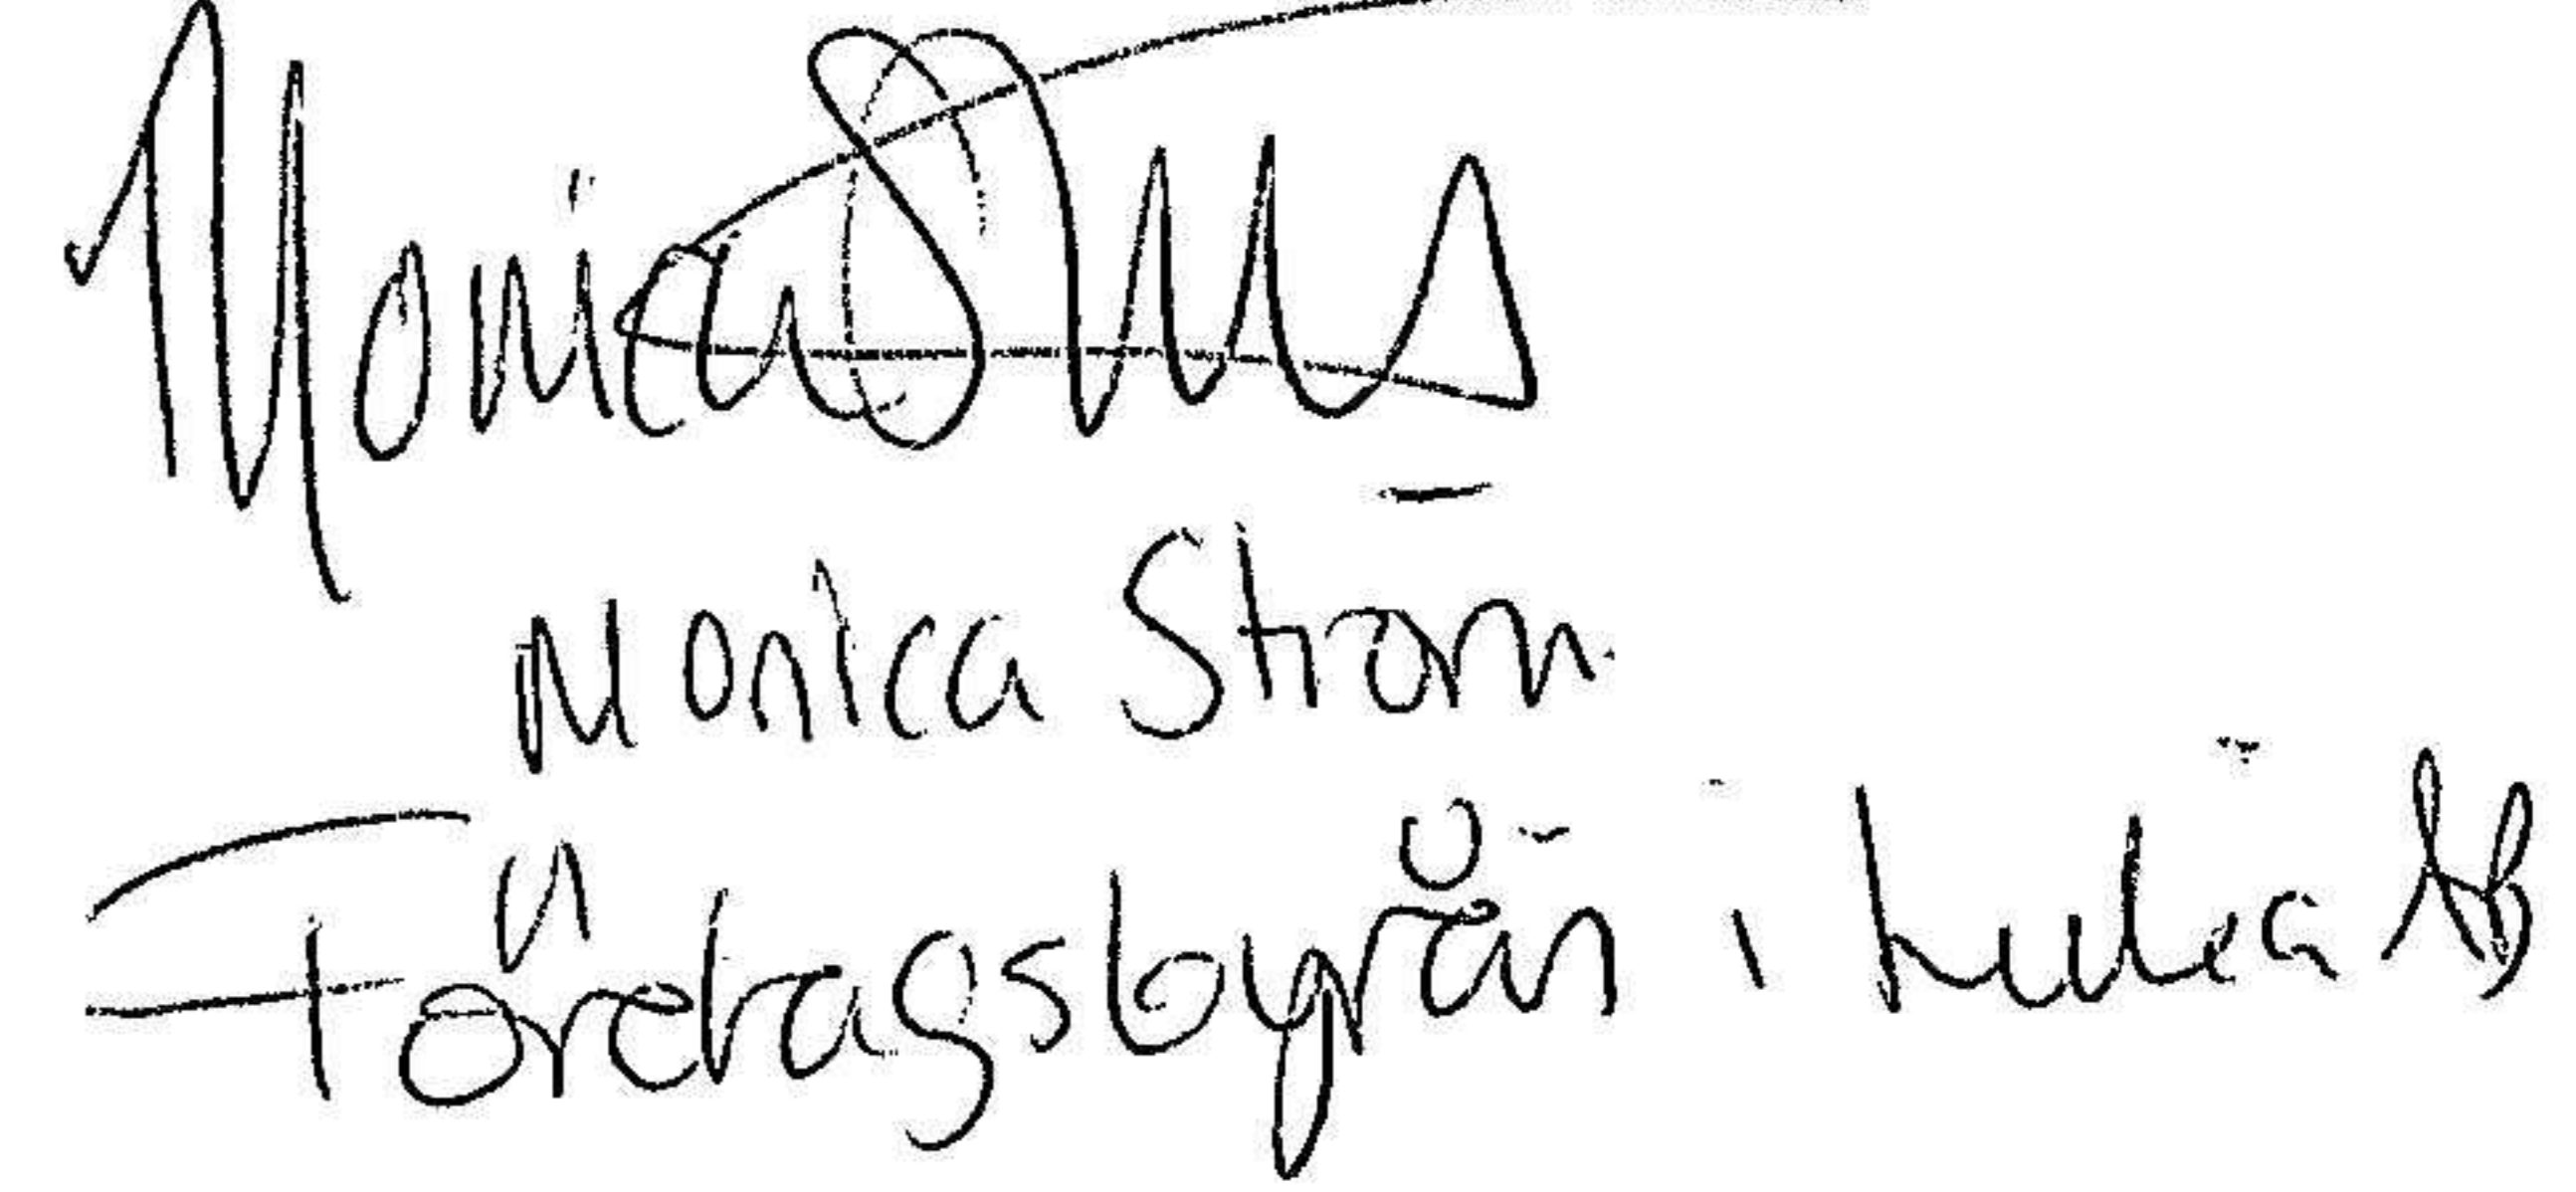 Monica Ström
Monica Ström
Företagsbyrån i Luleå AB